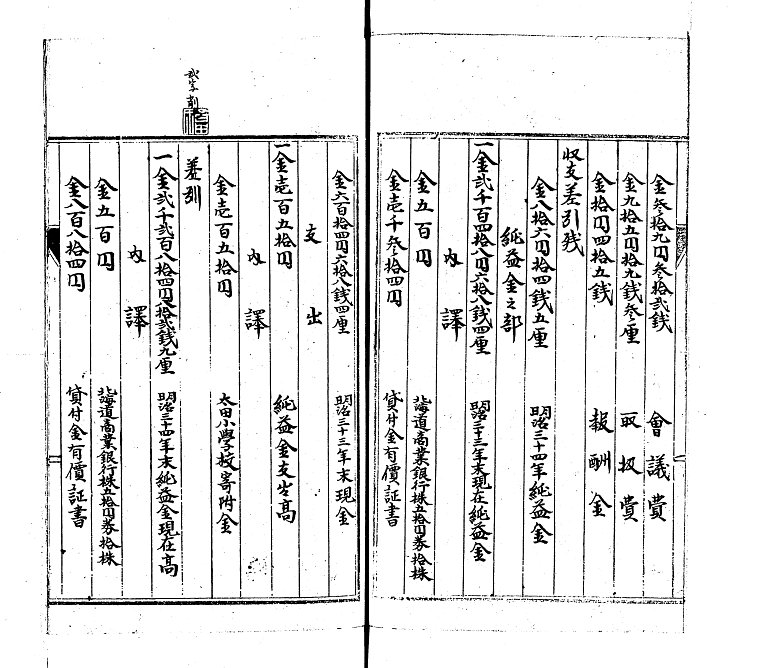 金参拾九円参拾弐銭 会議費
金九拾五円拾九銭参厘 取扱費
金拾円四拾五銭 報酬金
収支差引残
金八拾六円拾四銭五厘 明治三十四年純益金
純益金之部
一金弐千百四拾八円六拾八銭四厘 明治三十三年末現在純益金
内譯
金五百円 北海道商業銀行株五拾円券拾株
金壱千参拾四円 貸付金有價証書
金六百拾四円六拾八銭四厘 明治三十三年末現金
支出
一金壱百五拾円 純益金支出高
内譯
金壱百五拾円 太田小學校寄附金
差引
一金弐千弐百八拾四円八拾弐銭九厘 明治三十四年末純益金現在高
内譯
金五百円 北海道商業銀行株五拾円券拾株
金八百八拾四円 貸付金有價証書